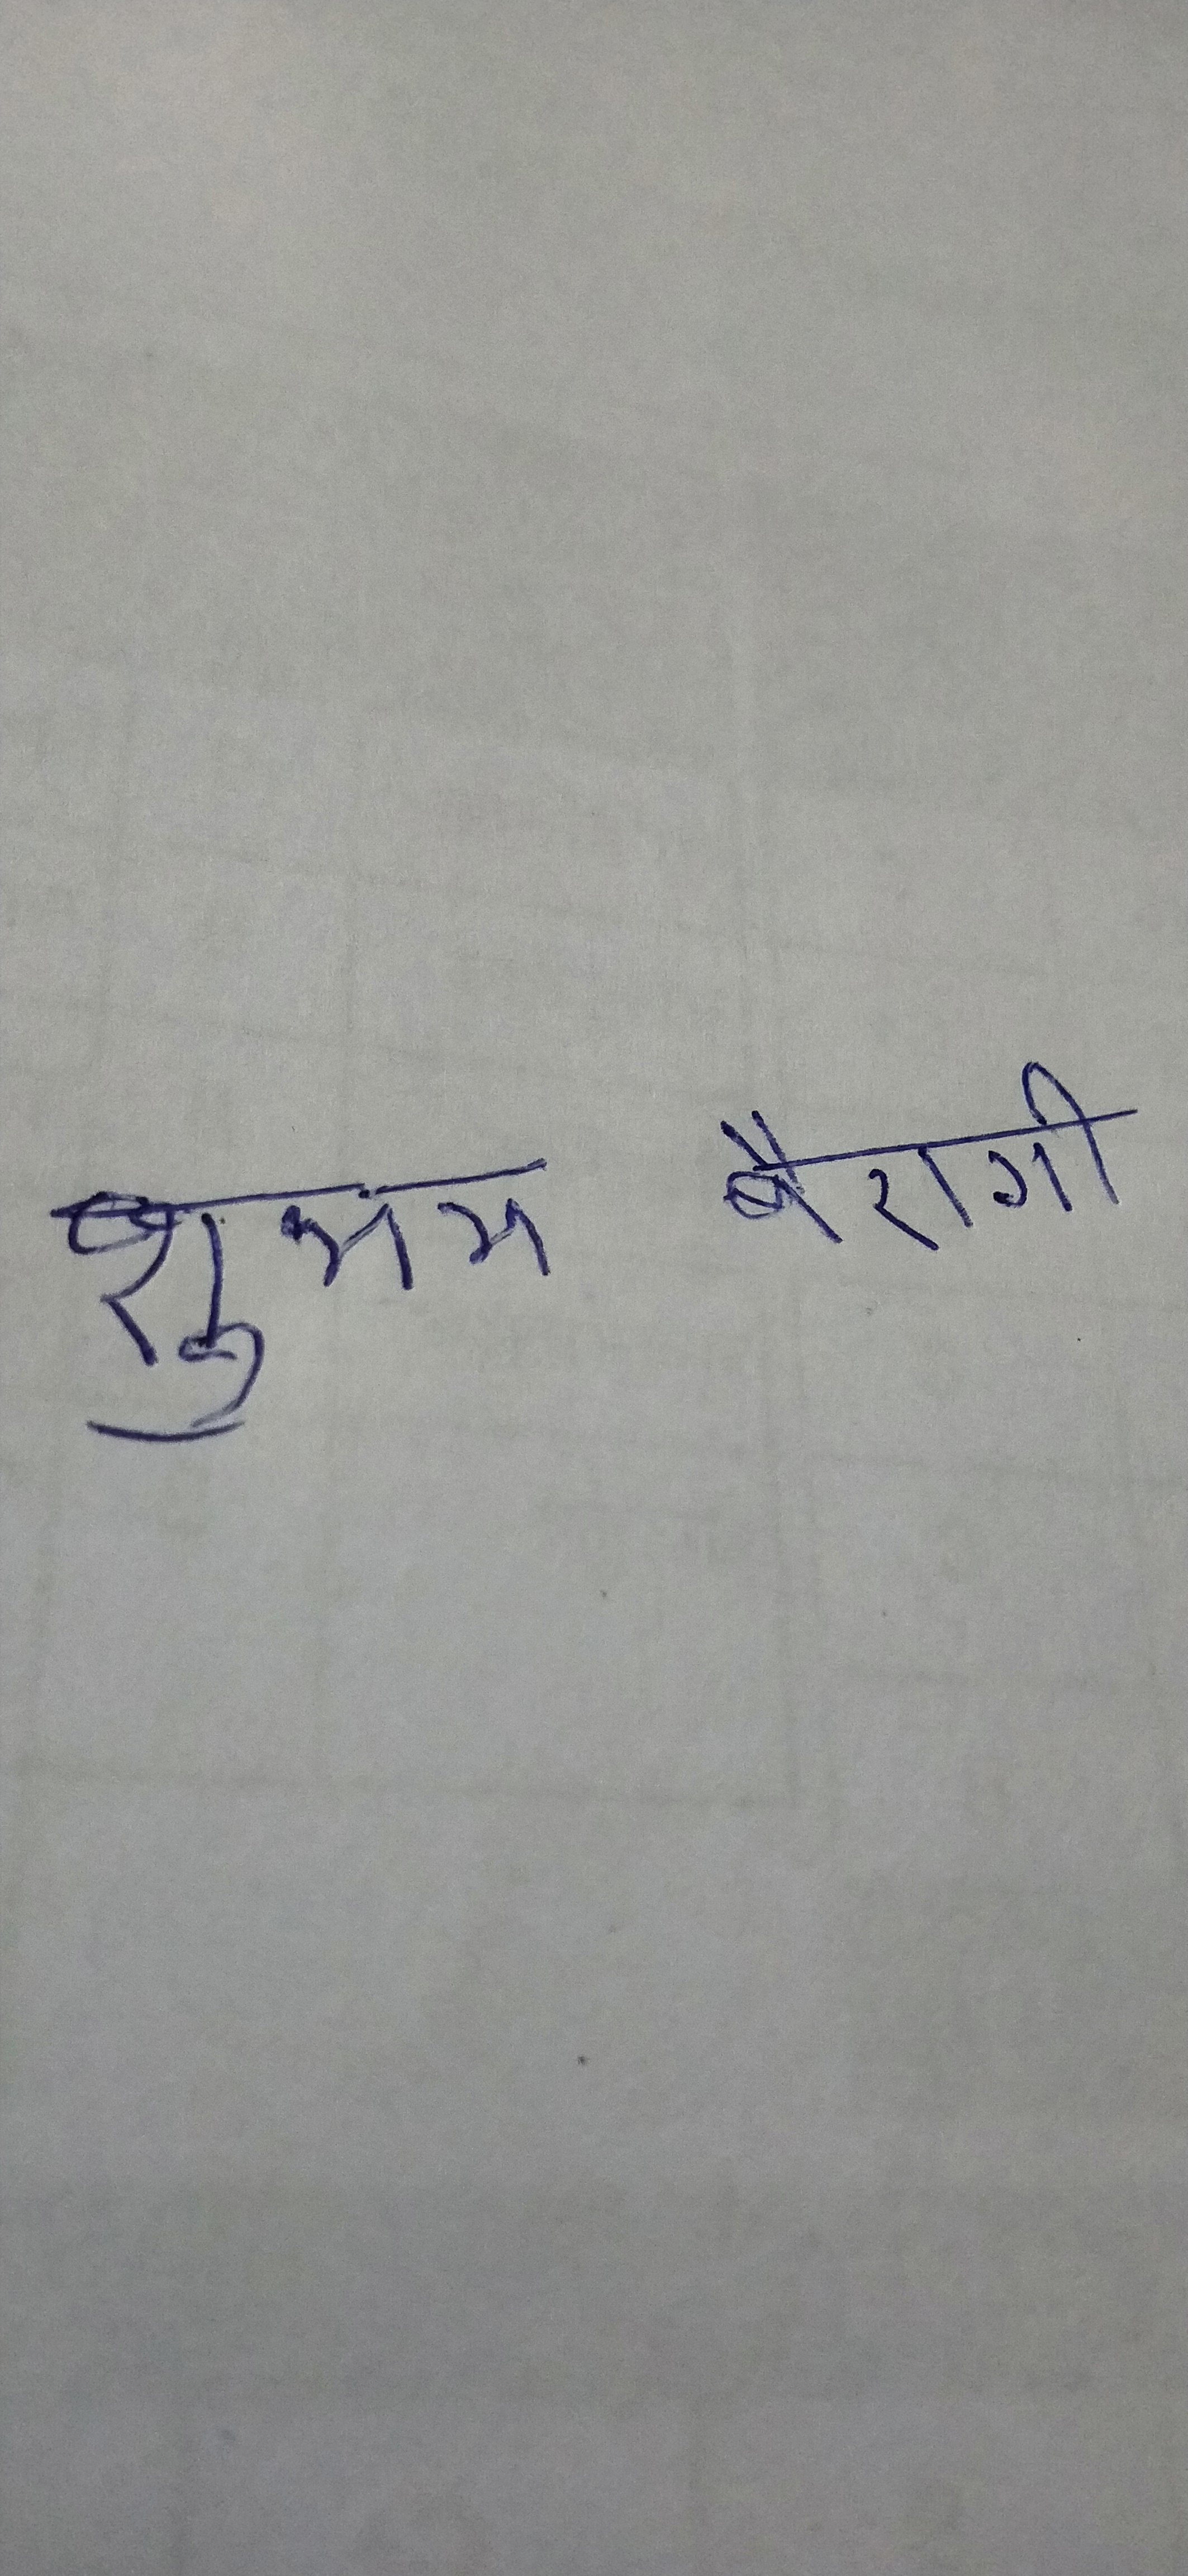 शुभम बैरागी